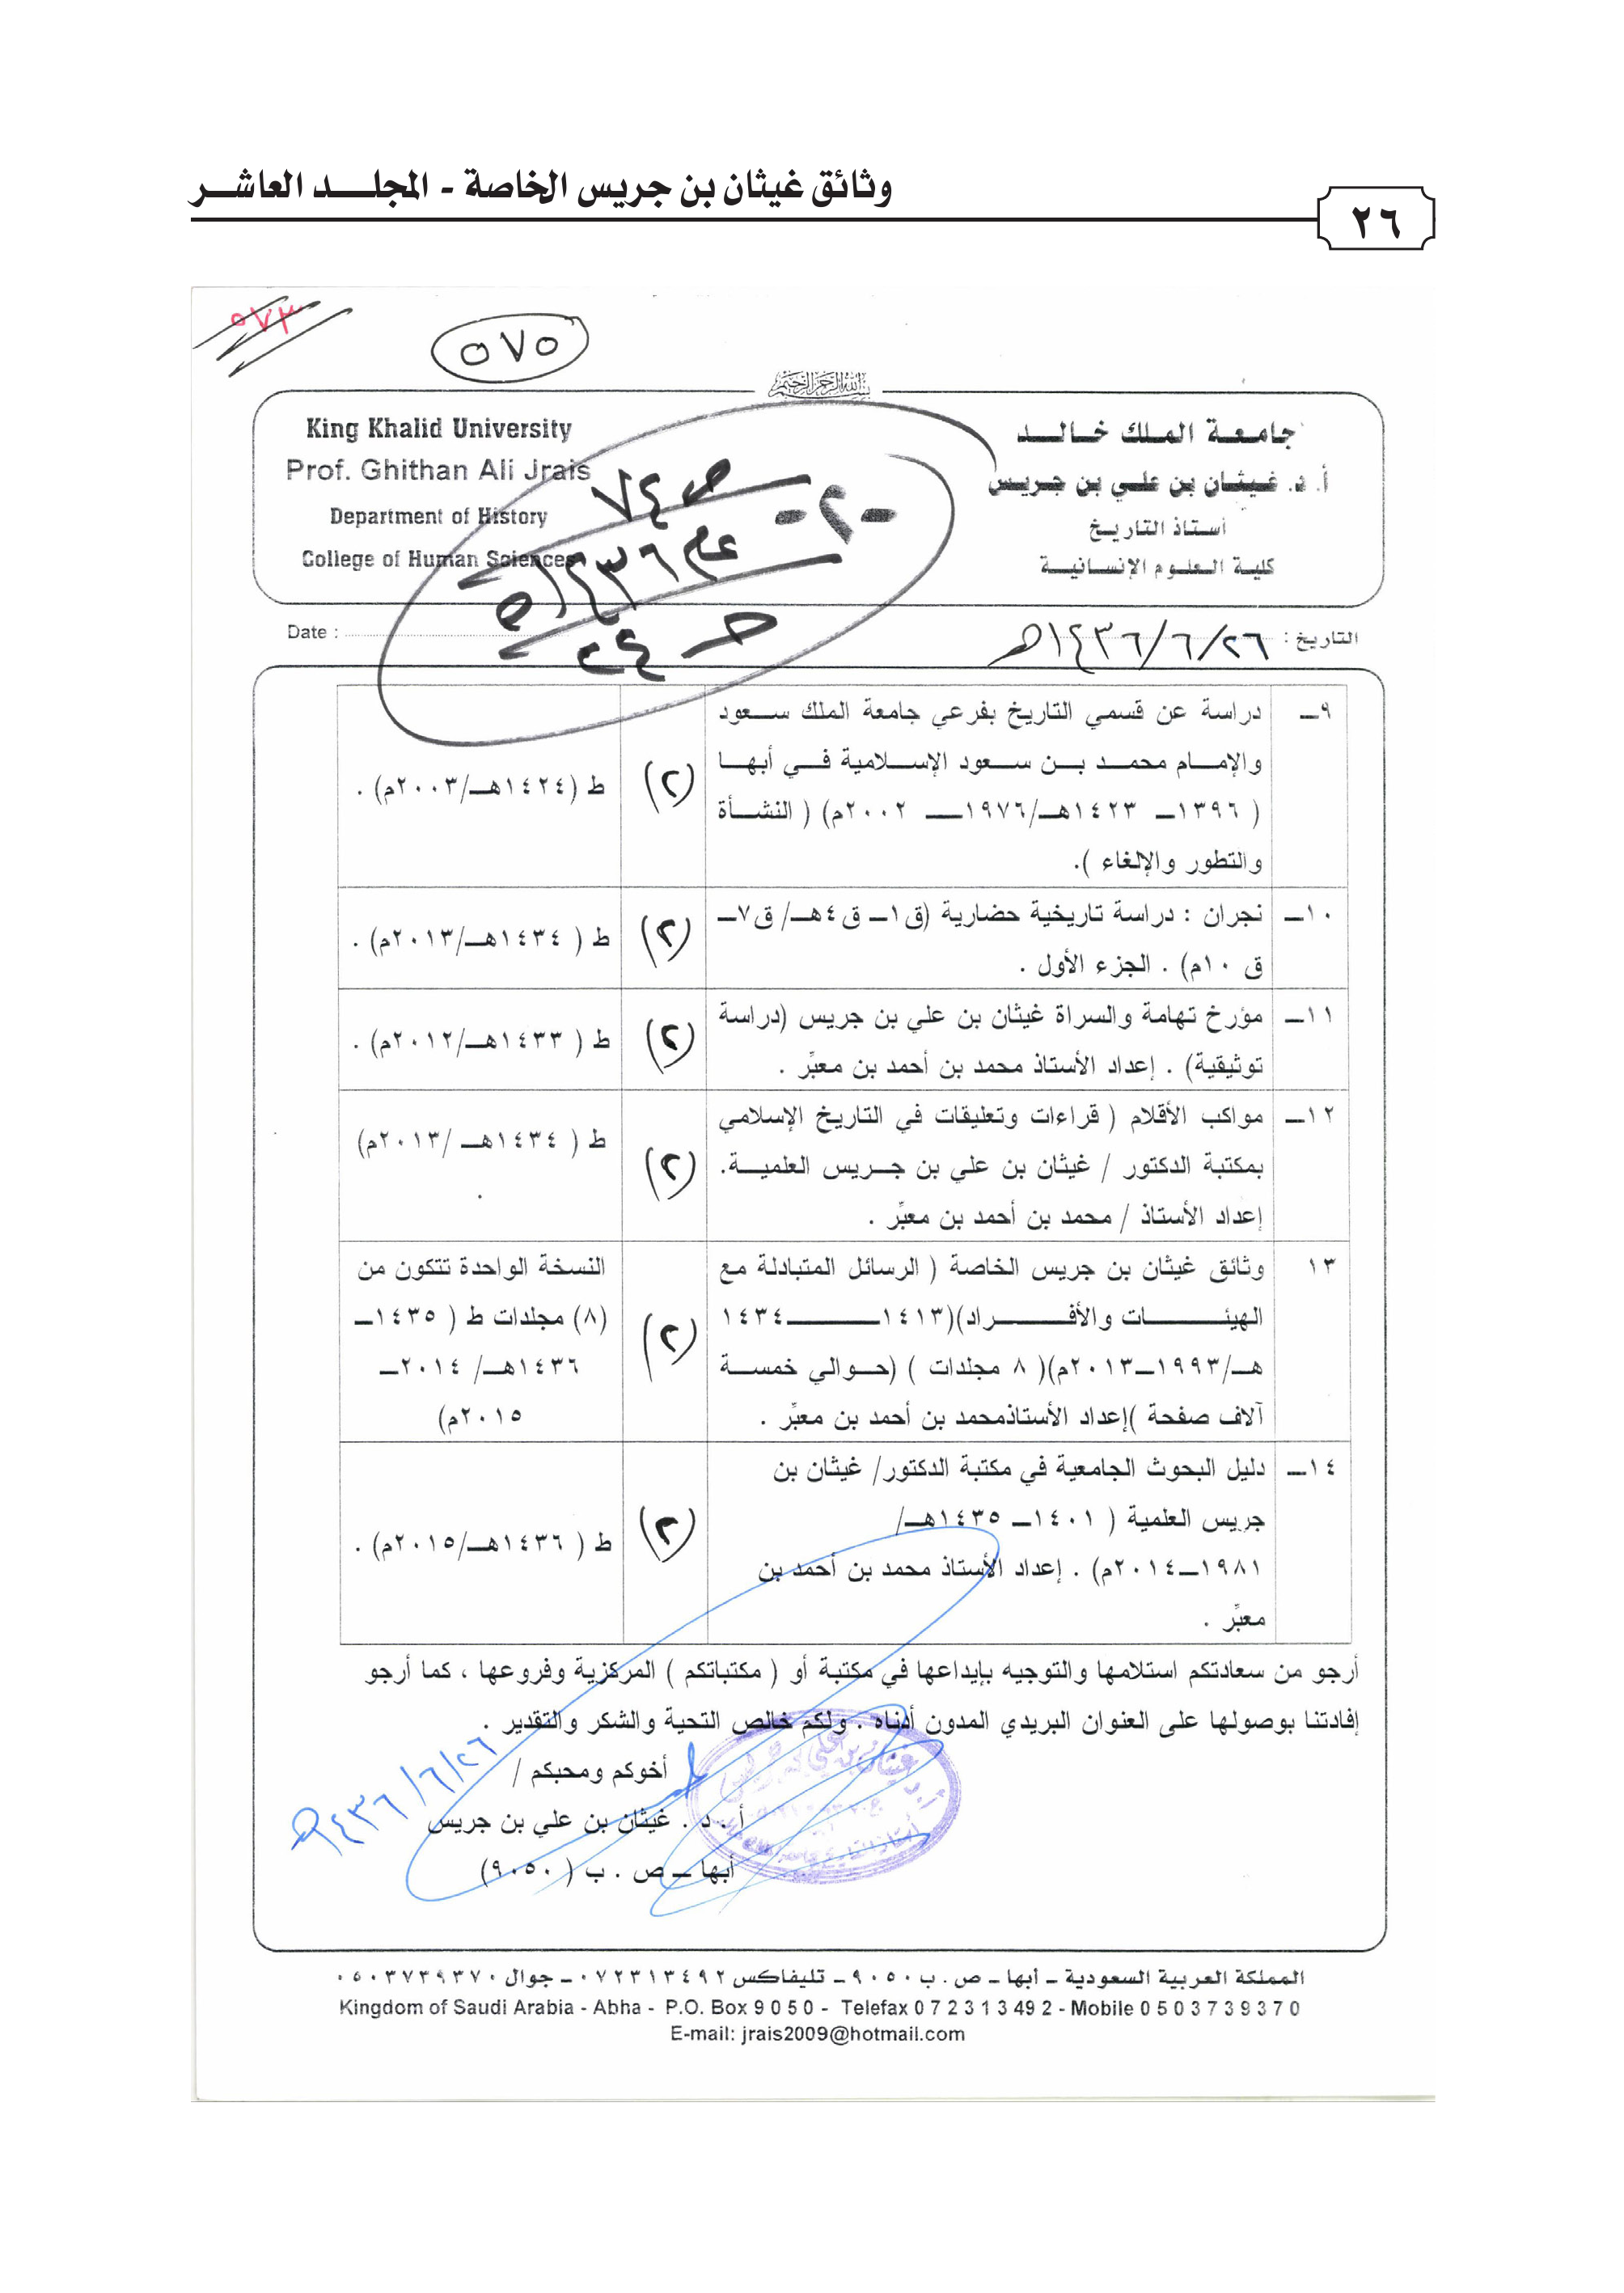 وثائق غيثان بن جريس الخاصة - المجلـــد العاشـــر
٢٦
٥٧٣
٥٧٥
بسم الله الرحمن الرحيم
جامعة الملك خالد
أ. د. غيثان بن علي بن جريس
أستاذ التاريخ
كلية العلوم الإنسانية
King Khalid University
Prof. Ghithan Ali Jrais
Department of History
College of Human Sciences
-٢-
ص ٧٤
عام ١٤٣٦هـ
التاريخ : ١٤٣٦/٦/٢٦هـ
Date :
٩ـ
دراسة عن قسمي التاريخ بفرعي جامعة الملك سعود
والإمام محمد بن سعود الإسلامية في أبها
( ١٣٩٦ـ ١٤٢٣هـ/١٩٧٦ـ ٢٠٠٢م) ( النشأة
والتطور والإلغاء ).
(٢)
ط (١٤٢٤هـ/٢٠٠٣م) .
١٠ـ
نجران : دراسة تاريخية حضارية (ق١ـ ق٤هـ/ ق٧ـ
ق ١٠م) . الجزء الأول .
(٢)
ط ( ١٤٣٤هـ/٢٠١٣م) .
١١ـ
مؤرخ تهامة والسراة غيثان بن علي بن جريس (دراسة
توثيقية) . إعداد الأستاذ محمد بن أحمد بن معبِّر .
(٢)
ط ( ١٤٣٣هـ/٢٠١٢م) .
١٢ـ
مواكب الأقلام ( قراءات وتعليقات في التاريخ الإسلامي
بمكتبة الدكتور / غيثان بن علي بن جريس العلمية.
إعداد الأستاذ / محمد بن أحمد بن معبِّر .
(٢)
ط ( ١٤٣٤هـ /٢٠١٣م)
.
١٣
وثائق غيثان بن جريس الخاصة ( الرسائل المتبادلة مع
الهيئات والأفراد)(١٤١٣ـ ١٤٣٤
هـ/١٩٩٣ـ٢٠١٣م)( ٨ مجلدات ) (حوالي خمسة
آلاف صفحة )إعداد الأستاذمحمد بن أحمد بن معبِّر .
(٢)
النسخة الواحدة تتكون من
(٨) مجلدات ط ( ١٤٣٥ـ
١٤٣٦هـ/ ٢٠١٤ـ
٢٠١٥م)
١٤ـ
دليل البحوث الجامعية في مكتبة الدكتور/ غيثان بن
جريس العلمية ( ١٤٠١ـ ١٤٣٥هـ/
١٩٨١ـ٢٠١٤م) . إعداد الأستاذ محمد بن أحمد بن
معبِّر .
(٢)
ط ( ١٤٣٦هـ/٢٠١٥م) .
أرجو من سعادتكم استلامها والتوجيه بإيداعها في مكتبة أو ( مكتباتكم ) المركزية وفروعها ، كما أرجو
إفادتنا بوصولها على العنوان البريدي المدون أدناه . ولكم خالص التحية والشكر والتقدير .
أخوكم ومحبكم /
أ . د . غيثان بن علي بن جريس
أبها ـ ص . ب ( ٩٠٥٠)
١٤٣٦/٦/٢٦هـ
المملكة العربية السعودية ـ أبها ـ ص. ب ٩٠٥٠ ـ تليفاكس ٠٧٢٣١٣٤٩٢ ـ جوال ٠٥٠٣٧٣٩٣٧٠
Kingdom of Saudi Arabia - Abha - P.O. Box 9 0 5 0 - Telefax 0 7 2 3 1 3 49 2 - Mobile 0 5 0 3 7 3 9 3 7 0
E-mail: jrais2009@hotmail.com